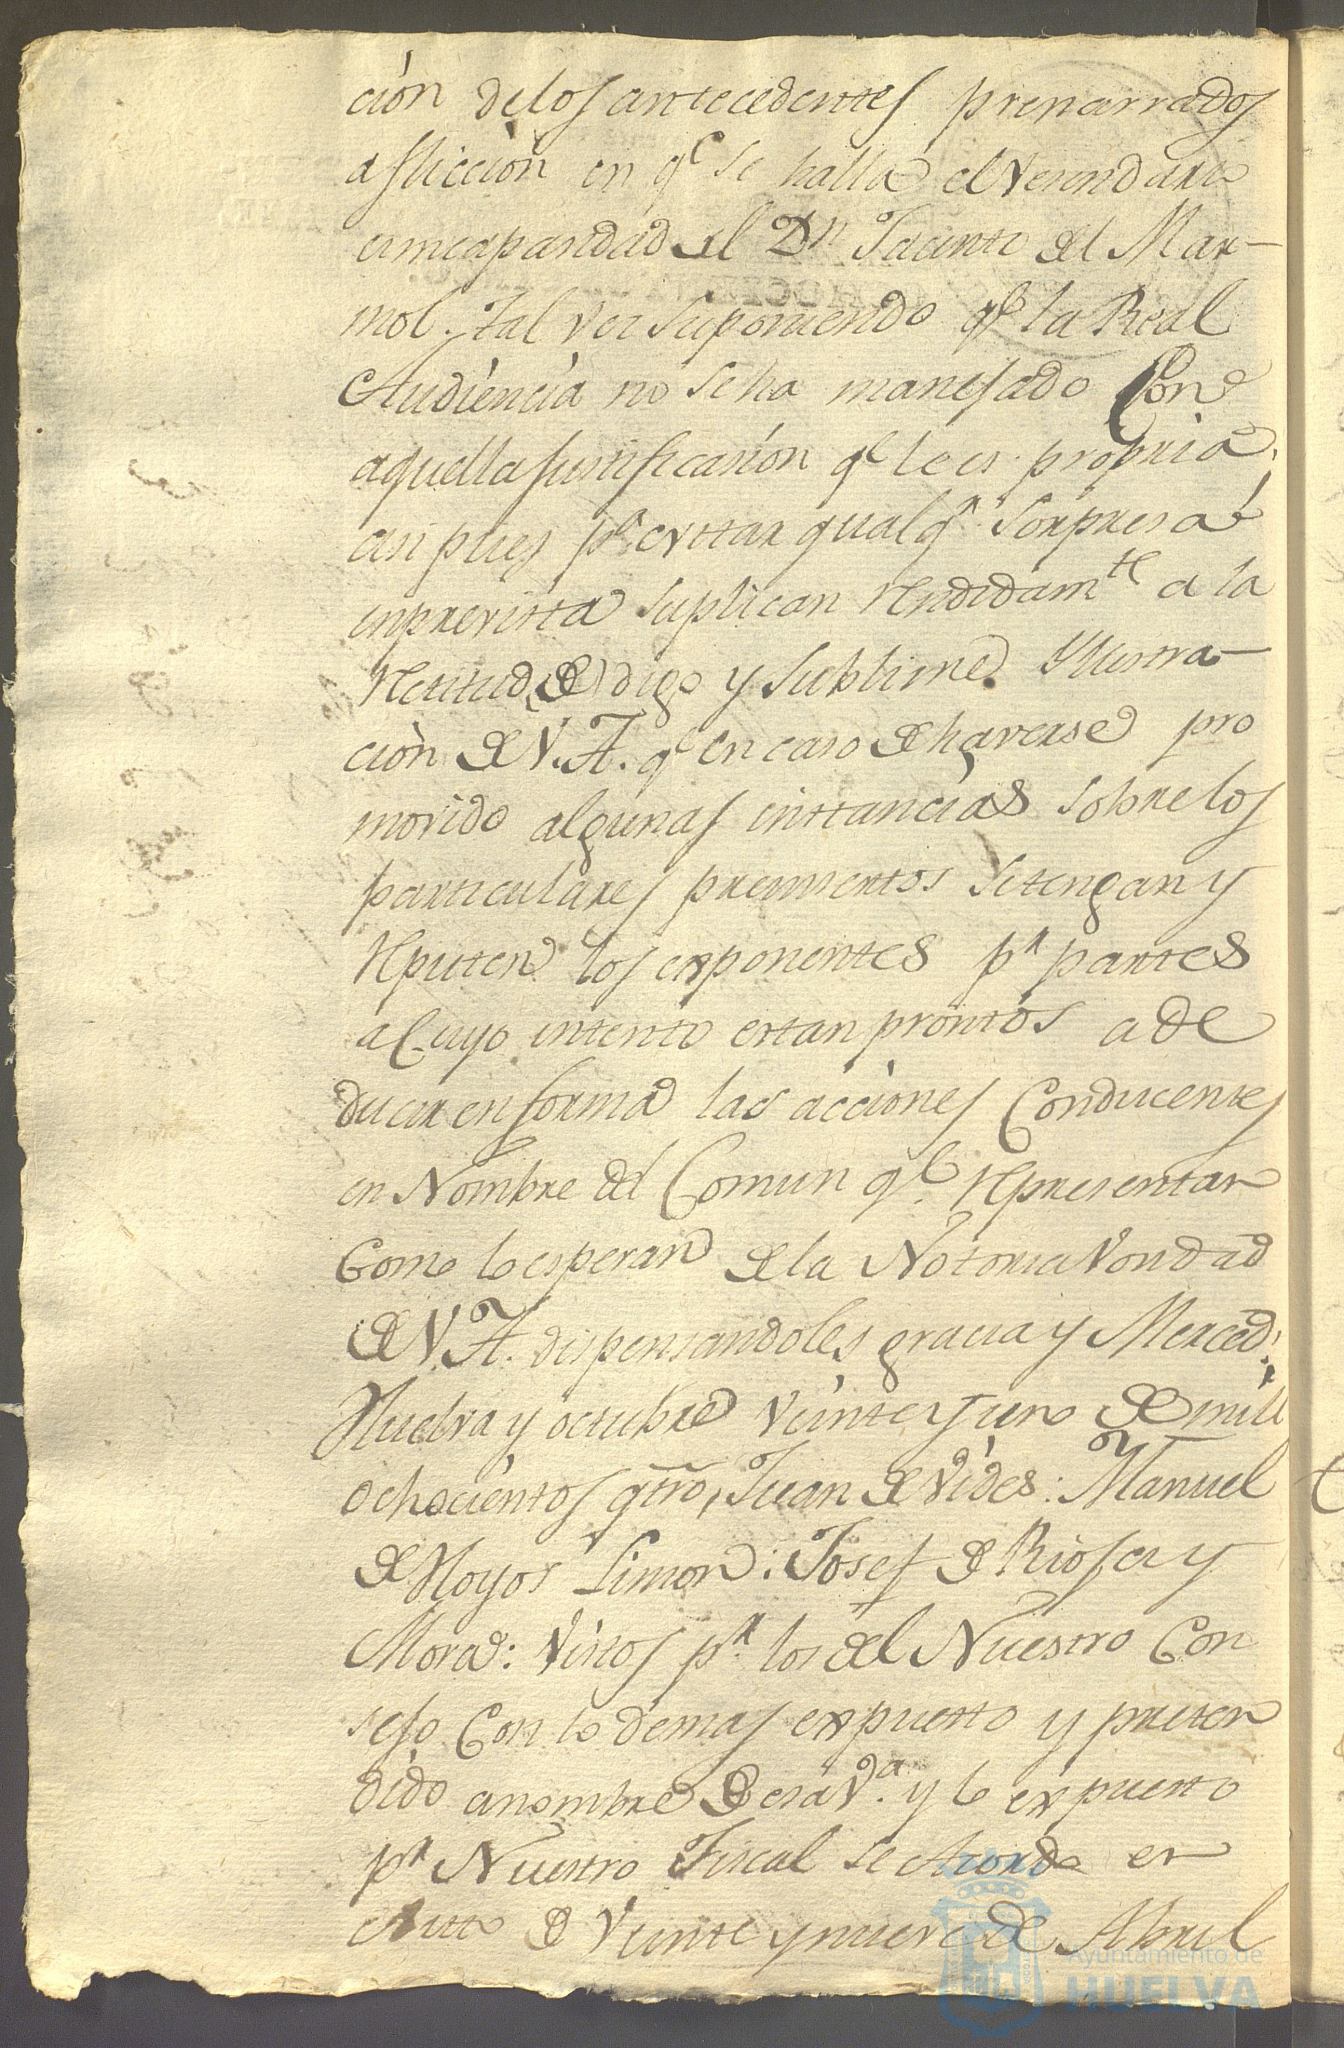 ción delos antecedentes prenarrados
afliccion en qe se halla el Vecindario
eincapacidad del Dn Jacinto del Mar-
mol. tal vez suponiendo qe la Real
Audiencia no seha manejado Con
aquella justificasion qe le es propria,
asi pues pa evitar qualqa sorpresa
inprevista suplican rendidamte a la
rectitud de digo y sublime Ylustra-
ción de V. A. qe en caso de haverse pro
movido algunas instancias sobre los
particulares preinsertos setengan y
reputen los exponentes pr partes
a Cuyo intento estan prontos a de
ducir en forma las acciones Conducentes
en Nombre del Comun qe representan
Como lo esperan de la Notoria Vondad
de V. A. dispensandoles gracia y Merced.
Huelva y octubre veinte y uno de mill
ochocientos qtro, Juan de Vides: Manuel
de Hoyos Limon: Josef de Rioja y
Mora: Vistos pr los del Nuestro Con
sejo Con lo demas expuesto y preten
dido anombre de esa Va. y lo expuesto
pr Nuestro Fiscal se Acordo en
Auto de Veinte y nueve de Abril
Ayuntamiento de
HUELVA